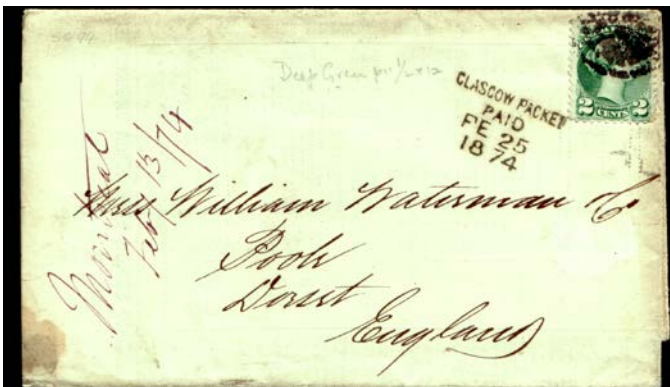 Deep Green p 11 1/2 x 12
GLASGOW PACKET
PAID
FE 25
1874
2 CENTS 2
Montreal
Feby 13/74
Messrs William Waterman & Co
Poole
Dorset
England